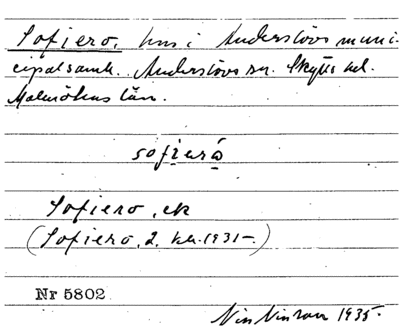 Sofiero, hus i Anderslövs muni-
cipalsamh. Anderslövs sn. Skytts hd.
Malmöhus län.
sofierɷ
Sofiero, ek
(Sofiero, 2 kh. 1931–)
Nr 5802
Nils Nilsson 1935.